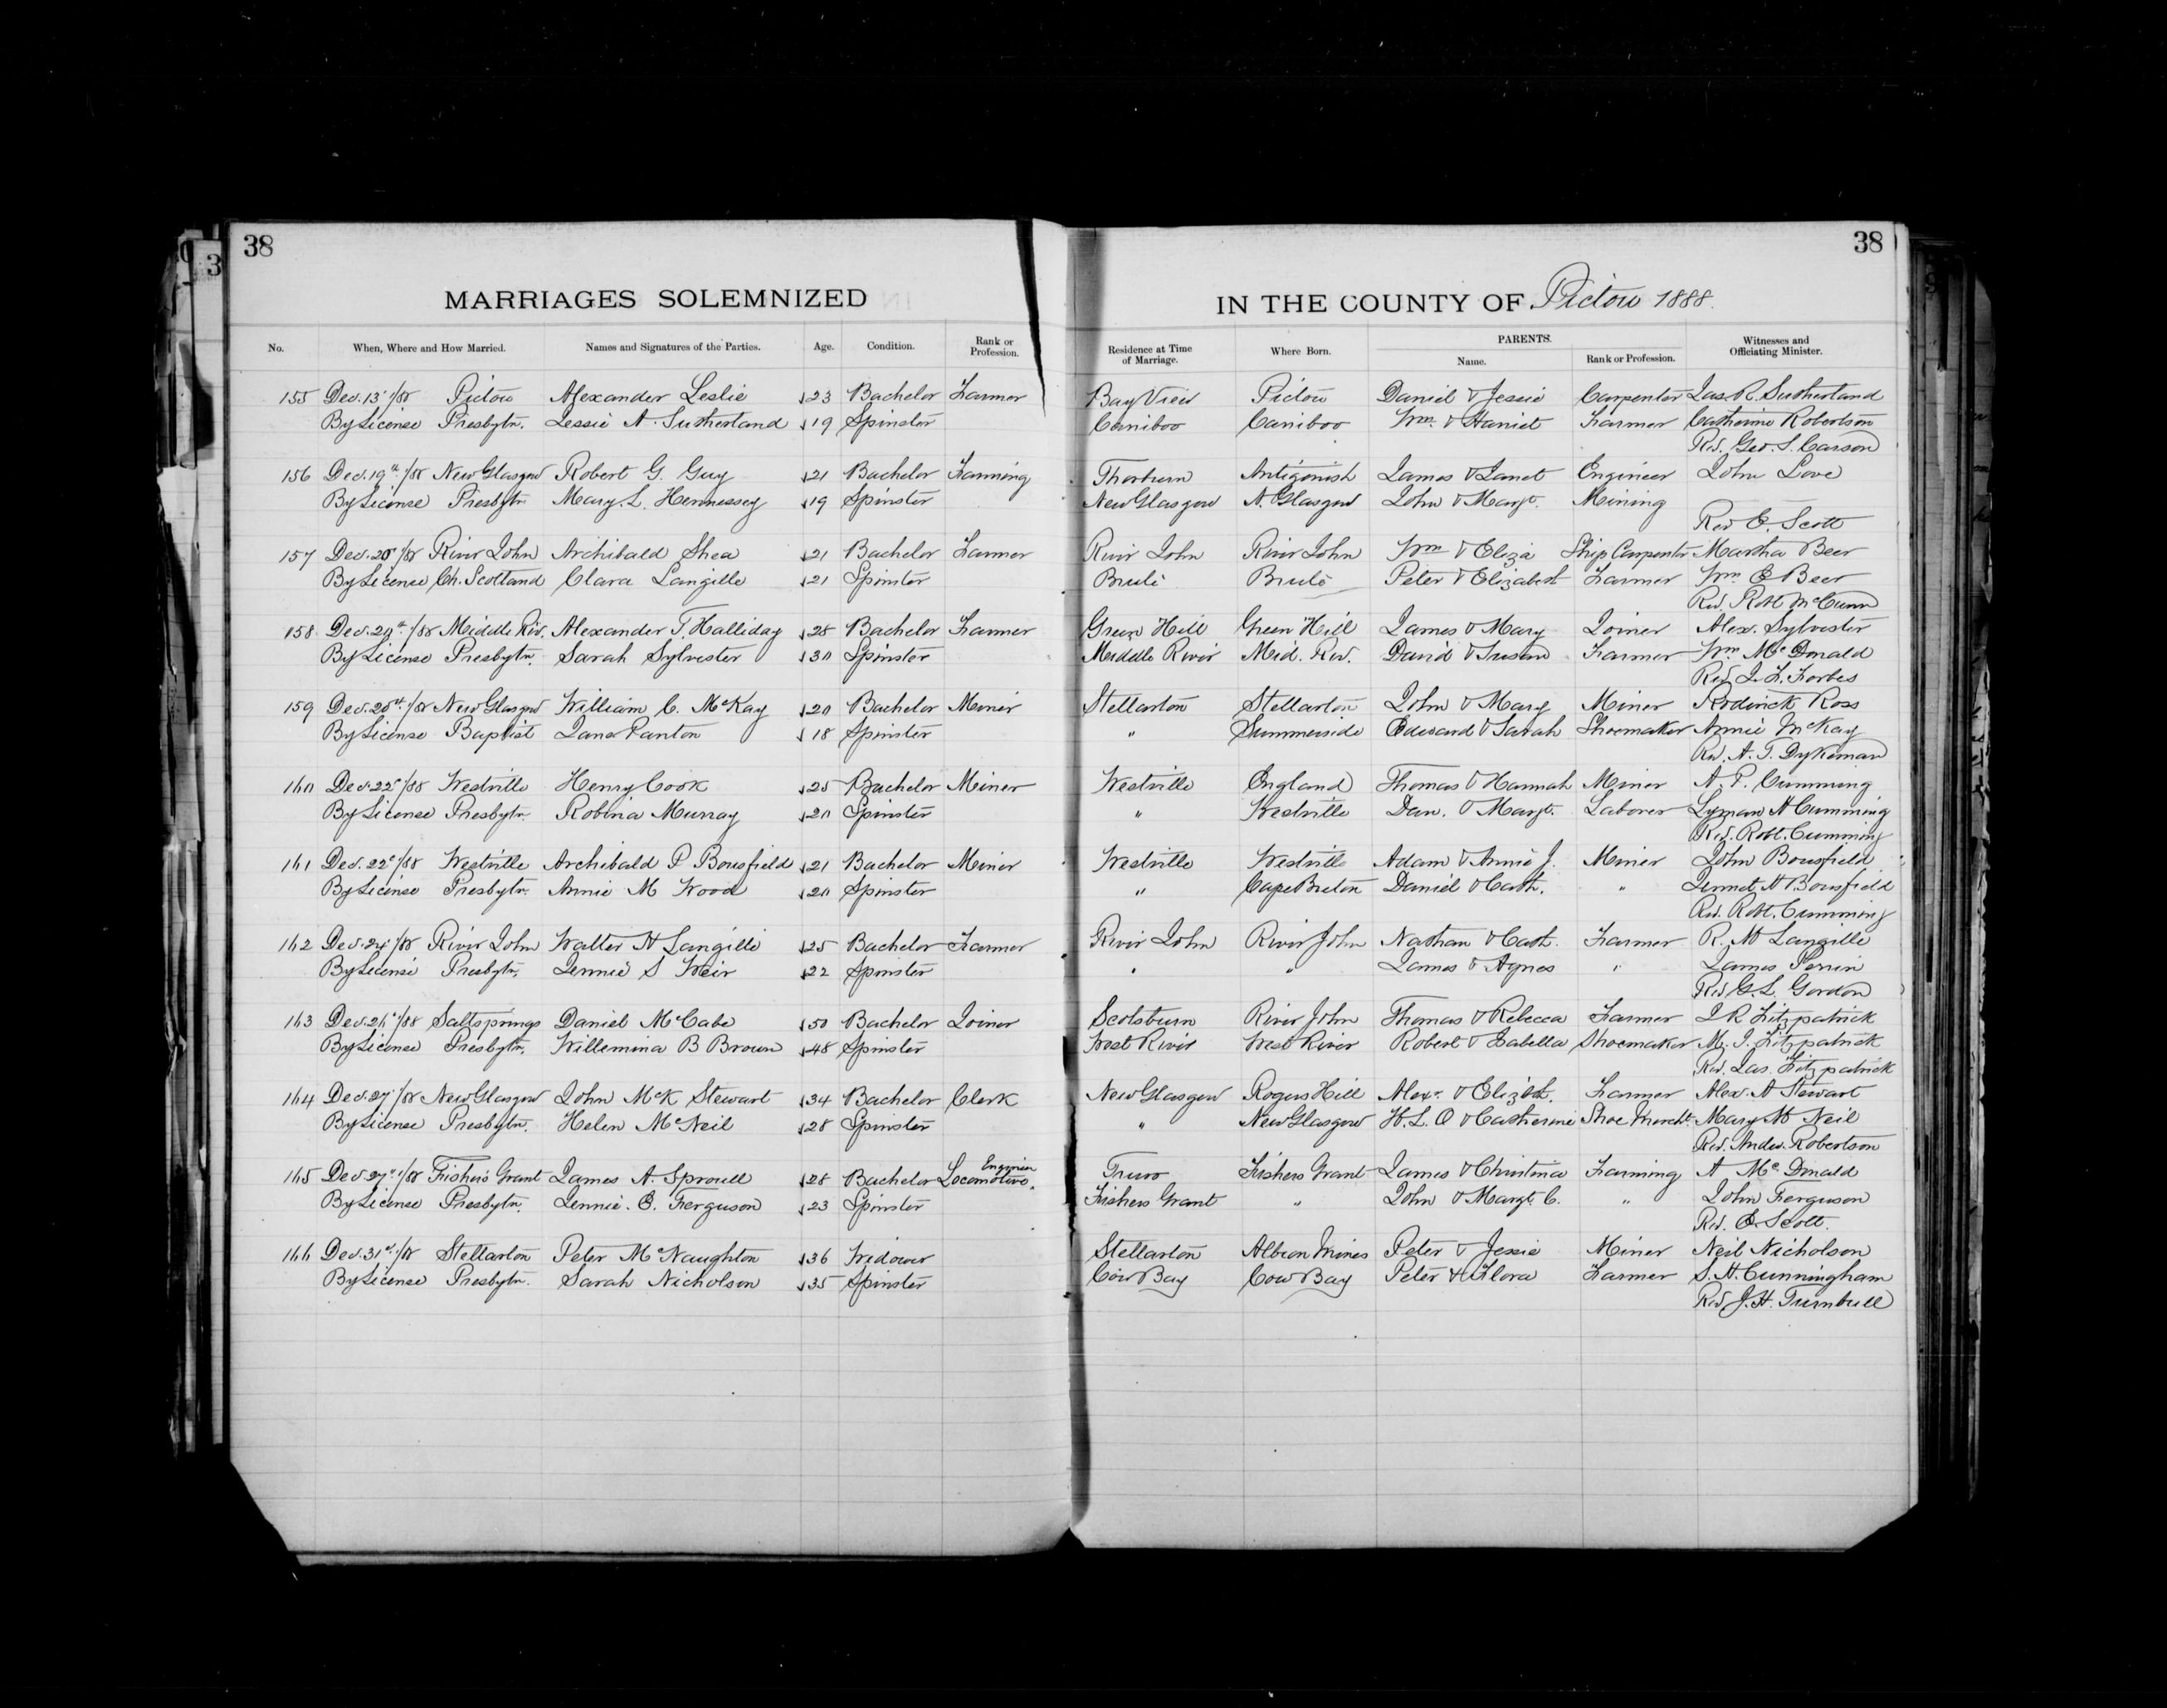 38
38
3
MARRIAGES SOLEMNIZED IN THE COUNTY OF Pictou 1888.
No. When, Where and How Married. Names and Signatures of the Parties. Age. Condition. Rank or Profession. Residence at Time of Marriage. Where Born. PARENTS. Name. Rank or Profession. Witnesses and Officiating Minister.
155 Dec. 13th/88 Pictou Alexander Leslie 23 Bachelor Farmer Bay View Pictou Daniel & Jessie Carpenter Jas. R. Sutherland
By License Presbytn. Jessie A. Sutherland 19 Spinster Cariboo Cariboo Wm. & Harriet Farmer Catherine Robertson
Rev. Geo. S. Carson
156 Dec. 19th/88 New Glasgow Robert G. Guy 21 Bachelor Farming Thorburn Antigonish James & Janet Engineer John Love
By License Presbytn Mary L. Hennessey 19 Spinster New Glasgow N. Glasgow John & Margt. Mining
Rev E. Scott
157 Dec. 20/88 River John Archibald Shea 21 Bachelor Farmer River John River John Wm & Eliza Ship Carpenter Martha Beer
By License Ch. Scotland Clara Langille 21 Spinster Brule Brule Peter & Elizabeth Farmer Wm E Beer
Rev. Robt McCunn
158 Dec. 20th/88 Middle Riv. Alexander T. Halliday 28 Bachelor Farmer Green Hill Green Hill James & Mary Joiner Alex. Sylvester
By License Presbytn. Sarah Sylvester 30 Spinster Middle River Mid. Riv. David & Susan Farmer Wm McDonald
Rev J. F. Forbes
159 Dec. 20th/88 New Glasgow William C. McKay 20 Bachelor Miner Stellarton Stellarton John & Mary Miner Roderick Ross
By License Baptist Jane Panton 18 Spinster " Summerside Edward & Sarah Shoemaker Annie McKay
Rev. A. T. Dykeman
160 Dec. 22/88 Westville Henry Cook 25 Bachelor Miner Westville England Thomas & Hannah Miner A. P. Cumming
By License Presbytn. Robina Murray 20 Spinster " Westville Dan. & Margt. Laborer Lyman A Cumming
Rev. Robt. Cumming
161 Dec. 22/88 Westville Archibald P Bousfield 21 Bachelor Miner Westville Westville Adam & Annie J. Miner John Bousfield
By License Presbytn. Annie M Wood 20 Spinster " Cape Breton Daniel & Cath. " Jennet A Bousfield
Rev. Robt. Cumming
162 Dec. 24/88 River John Walter A Langille 25 Bachelor Farmer River John River John Nathan & Cath. Farmer R. M Langille
By License Presbytn. Jennie S Weir 22 Spinster " " James & Agnes " James Perrin
Rev G. L. Gordon
163 Dec. 26/88 Saltsprings Daniel McCabe 50 Bachelor Joiner Scotsburn River John Thomas & Rebecca Farmer J R Fitzpatrick
By License Presbytn. Willemina B Brown 48 Spinster West River West River Robert & Isabella Shoemaker M. J. Fitzpatrick
Rev. Jas. Fitzpatrick
164 Dec. 27/88 New Glasgow John McK Stewart 34 Bachelor Clerk New Glasgow Rogers Hill Alexr. & Elizbt. Farmer Alex. A Stewart
By License Presbytn. Helen McNeil 28 Spinster " New Glasgow H. L. O & Catherine Shoe Mercht. Mary M Neil
Rev. Andw. Robertson
165 Dec 27/88 Fishers Grant James A. Sproull 28 Bachelor Locomotive Engineer Truro Fishers Grant James & Christina Farming A McDonald
By License Presbytn. Jennie. E. Ferguson 23 Spinster Fishers Grant " John & Margt. C. " John Ferguson
Rev. E Scott.
166 Dec. 31st/88 Stellarton Peter McNaughton 36 Widower Stellarton Albion Mines Peter & Jessie Miner Neil Nicholson
By License Presbytn. Sarah Nicholson 35 Spinster Cow Bay Cow Bay Peter & Flora Farmer S. A. Cunningham
Rev J. H. Turnbull